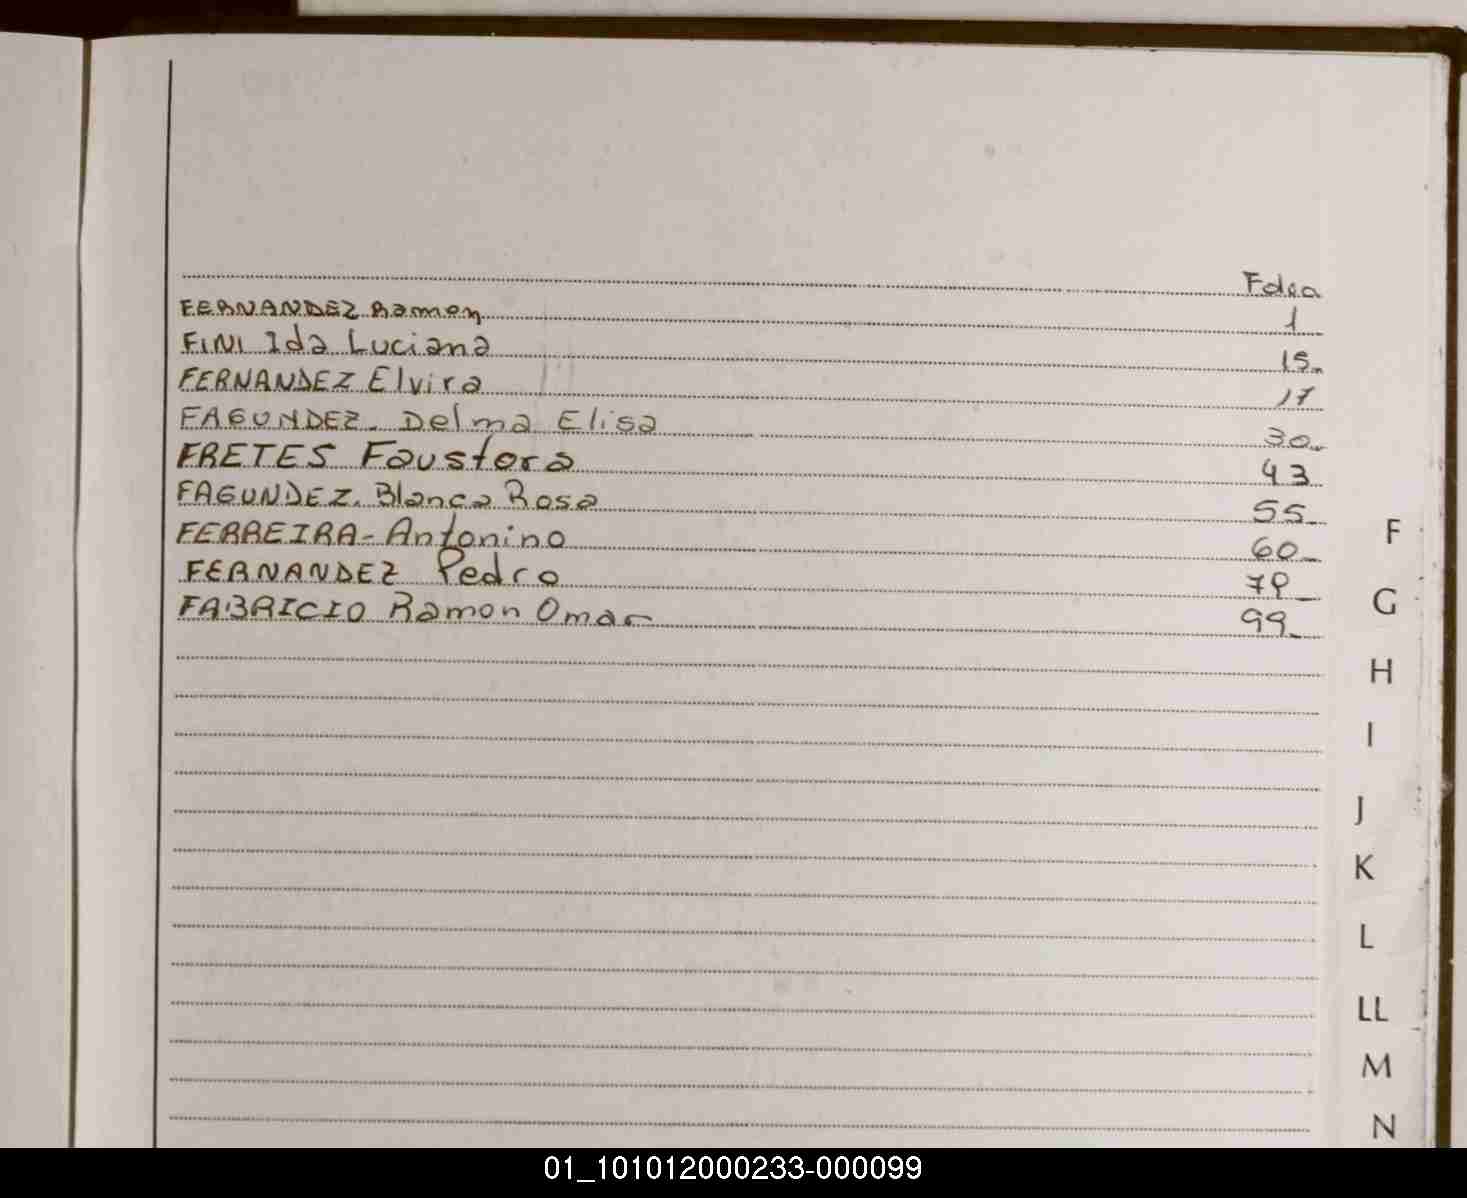 Folio
FERNANDEZ Ramon 1
FINI Ida Luciana 15
FERNANDEZ Elvira 17
FAGUNDEZ. Delma Elisa 30
FRETES Faustora 43
FAGUNDEZ. Blanca Rosa 55
FERREIRA-Antonino 60
FERNANDEZ Pedro
FABRICIO Ramon Omar 99
F
G
H
I
J
K
L
LL
M
N
01_101012000233-000099